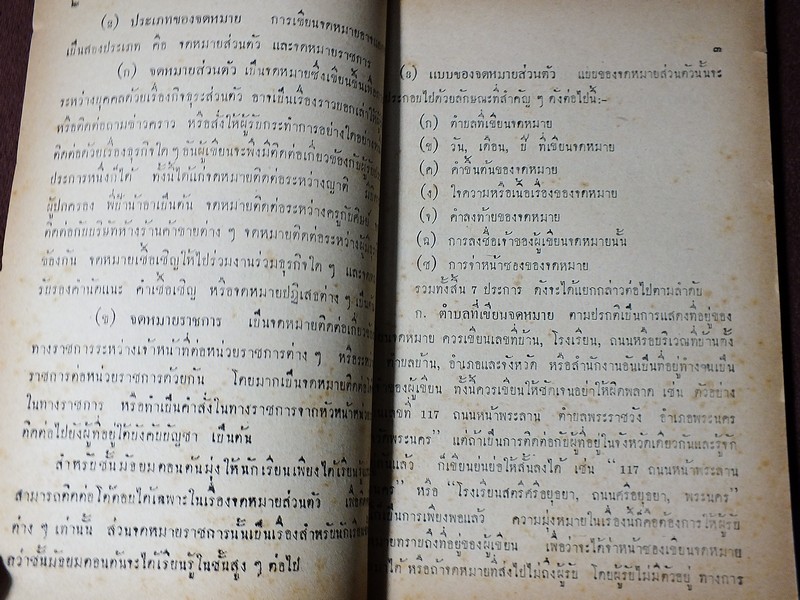 ๒
(๘) ประเภทของจดหมาย การเขียนจดหมายอาจ
เป็นสองประเภท คือ จดหมายส่วนตัว และจดหมายราชการ
(ก) จดหมายส่วนตัว เป็นจดหมายซึ่งเขียนขึ้นเพื่อ
ระหว่างบุคคลด้วยเรื่องกิจธุระส่วนตัว อาจเป็นเรื่องราวบอกเล่า
หรือติดต่อถามข่าวคราว หรือสั่งให้ผู้รับกระทำการอย่างใดอย่าง
ติดต่อด้วยเรื่องธุรกิจใด ๆ อันผู้เขียนจะพึงมีติดต่อเกี่ยวข้องกับ
ประการหนึ่งก็ได้ ทั้งนี้ได้แก่จดหมายติดต่อระหว่างญาติ
ผู้ปกครอง พี่ป้าน้าอาเป็นต้น จดหมายติดต่อระหว่างครูกับศิษย์
ติดต่อกับบริษัทห้างร้านค้าขายต่าง ๆ จดหมายติดต่อระหว่าง
ข้องกัน จดหมายเชื้อเชิญให้ไปร่วมงานร่วมธุรกิจใด ๆ และ
รับรองคำนัดแนะ คำเชื้อเชิญ หรือจดหมายปฏิเสธต่าง ๆ
(ข) จดหมายราชการ เป็นจดหมายติดต่อเกี่ยว
ทางราชการระหว่างเจ้าหน้าที่ต่อหน่วยราชการต่าง ๆ หรือ
ราชการต่อหน่วยราชการด้วยกัน โดยมากเป็นจดหมายติดต่อ
ในทางราชการ หรือทำเป็นคำสั่งในทางราชการจากหัวหน้า
ติดต่อไปยังผู้ที่อยู่ใต้บังคับบัญชา เป็นต้น
สำหรับชั้นมัธยมตอนต้นมุ่งให้นักเรียนเพียงได้เรียนรู้
สามารถติดต่อโต้ตอบได้เฉพาะในเรื่องจดหมายส่วนตัว
ต่าง ๆ เท่านั้น ส่วนจดหมายราชการนั้นเป็นเรื่องสำหรับนักเรียน
กว่าชั้นมัธยมตอนต้นจะได้เรียนรู้ในชั้นสูง ๆ ต่อไป
๓
(๘) แบบของจดหมายส่วนตัว แบบของจดหมายส่วนตัวนั้นจะ
ประกอบไปด้วยลักษณะที่สำคัญ ๆ ดังต่อไปนี้:-
(ก) ตำบลที่เขียนจดหมาย
(ข) วัน, เดือน, ปี ที่เขียนจดหมาย
(ค) คำขึ้นต้นของจดหมาย
(ง) ใจความหรือเนื้อเรื่องของจดหมาย
(จ) คำลงท้ายของจดหมาย
(ฉ) การลงชื่อเจ้าของผู้เขียนจดหมายนั้น
(ช) การจ่าหน้าซองของจดหมาย
รวมทั้งสิ้น 7 ประการ ดังจะได้แยกกล่าวต่อไปตามลำดับ
ก. ตำบลที่เขียนจดหมาย ตามปรกติเป็นการแสดงที่อยู่ของ
จดหมาย ควรเขียนเลขที่บ้าน, โรงเรียน, ถนนหรือบริเวณที่บ้านตั้ง
ตำบลบ้าน, อำเภอและจังหวัด หรือสำนักงานอันเป็นที่อยู่ทำงานเป็น
ของผู้เขียน ทั้งนี้ควรเขียนให้ชัดเจนอย่าให้ผิดพลาด เช่น ตัวอย่าง
เลขที่ 117 ถนนหน้าพระลาน ตำบลพระราชวัง อำเภอพระนคร
พระนคร" แต่ถ้าเป็นการติดต่อกับผู้ที่อยู่ในจังหวัดเดียวกันและรู้จัก
แล้ว ก็เขียนย่นย่อให้สั้นลงได้ เช่น "117 ถนนหน้าพระลาน
หรือ "โรงเรียนสตรีศรีอยุธยา, ถนนศรีอยุธยา, พระนคร"
เป็นการเพียงพอแล้ว ความมุ่งหมายในเรื่องนี้ก็คือต้องการให้ผู้รับ
ทราบถึงที่อยู่ของผู้เขียน เพื่อว่าจะได้จ่าหน้าซองเขียนจดหมาย
ได้ หรือถ้าจดหมายที่ส่งไปไม่ถึงผู้รับ โดยผู้รับไม่มีตัวอยู่ ทางการ